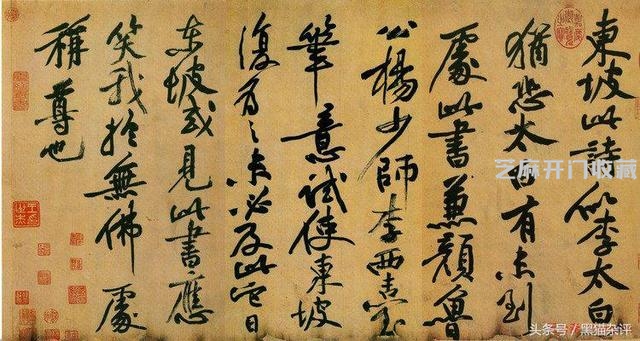 東坡此詩似李太白
猶恐太白有未到
處此書兼顏魯
公楊少師李西臺
筆意試使東坡
復為之未必及此它日
東坡或見此書應
笑我於無佛處
稱尊也
艺麻开门收藏
头条号/黑猫杂评